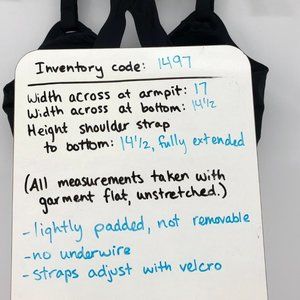 Inventory code: 1497
Width across at armpit: 17
Width across at bottom: 14 1/2
Height shoulder strap
to bottom: 14 1/2, fully extended
(All measurements taken with
garment flat, unstretched.)
-lightly padded, not removable
-no underwire
-straps adjust with velcro